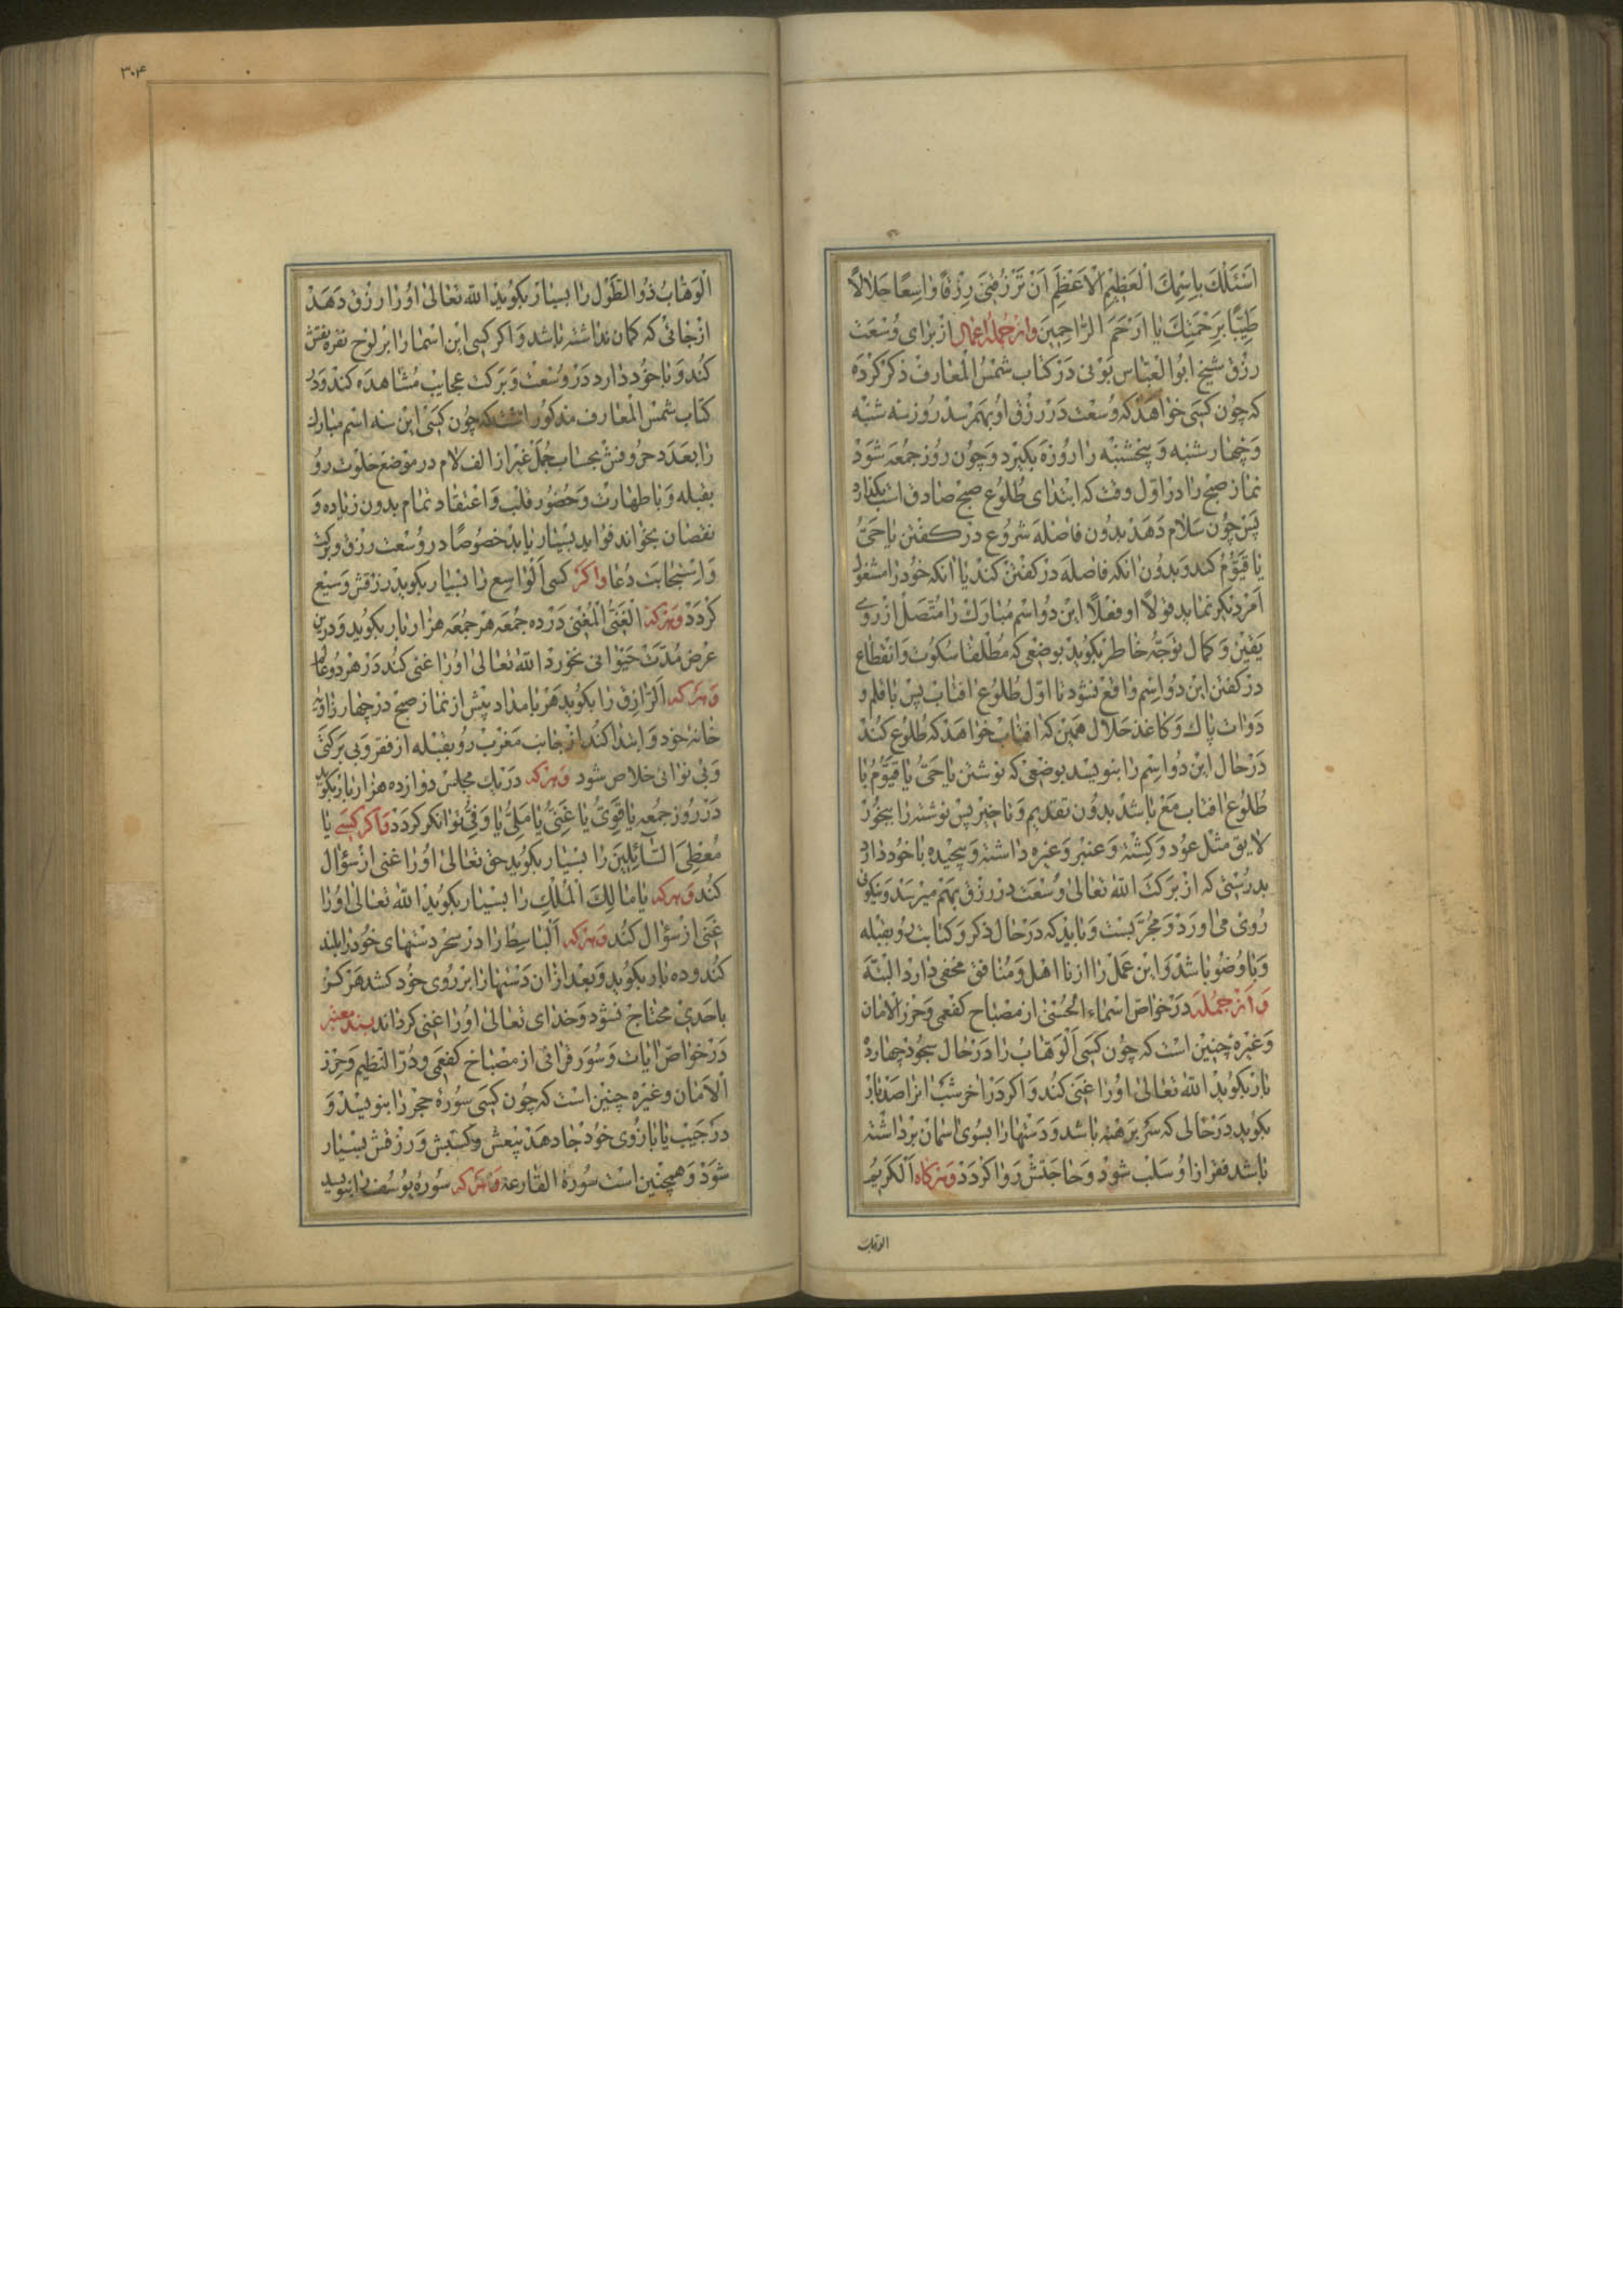 اَسْئَلُكَ بِاِسْمِكَ الْعَظِيمِ الْاَعْظَمِ اَنْ تَرْزُقَنِى رِزْقًا وٰاسِعًا حَلٰالًا
طَيِّبًا بِرَحْمَتِكَ يٰا اَرْحَمَ الرّٰاحِمِينَ وازجمله اعمال از براى وسعت
رزق شيخ ابوالعباس بونى در كتاب شمس المعارف ذكر كرده
كه چون كسى خواهد كه وسعت در رزق او بهمرسد روز سه شنبه
و چهارشنبه و پنجشنبه را روزه بگيرد و چون روز جمعه شود
نماز صبح را در اول وقت كه ابتداى طلوع صبح صادق است بگذارد
پس چون سلام دهد بدون فاصله شروع در گفتن يا حىّ
يا قيّوم كند و بدون آنكه فاصله در گفتن كند يا آنكه خود را مشغول
امر ديگر نمايد قولًا او فعلًا اين دو اسم مبارك را متصل از روى
يقين و كمال توجه خاطر بگويد بوضعى كه مطلقا سكوت و انقطاع
در گفتن اين دو اسم واقع نشود تا اول طلوع افتاب پس با قلم و
دوات پاك و كاغذ حلال همين كه افتاب خواهد كه طلوع كند
در حال اين دو اسم را بنويسد بوضعى كه نوشتن يا حىّ يا قيّوم با
طلوع افتاب مع باشد بدون تقديم و تاخير پس نوشته را ببخور
لايق مثل عود و كشته و عنبر و غيره داشته و پيچيده با خود دارد
بدرستى كه از بركت الله تعالى وسعت در رزق بهم ميرسد و نيكوئى
روى مى اورد و مجرّبست و بايد كه در حال ذكر و كتابت رو بقبله
و با وضو باشد و اين عمل را از نا اهل و منافق مخفى دارد البته
و از جمله در خواصّ اسماء الحسنى از مصباح كفعمى و حرز الامان
و غيره چنين است كه چون كسى الوهّاب را در حال سجود چهارده
بار بگويد الله تعالى او را غنى كند و اگر در اخر شب انرا صد بار
بگويد در حالى كه سر برهنه باشد و دستها را بسوى اسمان برداشته
باشد فقر از او سلب شود و حاجتش روا گردد و هرگاه الكريم
الوهاب
٣٠٤
الوهّاب ذو الطّول را بسيار بگويد الله تعالى او را رزق دهد
از جائى كه گمان نداشته باشد و اگر كسى اين اسما را بر لوح نقره نقش
كند و با خود دارد در وسعت و بركت عجايب مشاهده كند و در
كتاب شمس المعارف مذكور است كه چون كسى اين سه اسم مبارك
را بعدد حروفش بحساب جمل غير از الف لام در موضع خلوت رو
بقبله و با طهارت و حضور قلب و اعتقاد تمام بدون زياده و
نقصان بخواند فوايد بسيار يابد خصوصًا در وسعت رزق و بركت
و استجابت دعا واگر كسى الواسع را بسيار بگويد رزقش وسيع
گردد و هركه الغنىّ المغنى در ده جمعه هر جمعه هزار بار بگويد و درين
عرض مدت حيوانى نخورد الله تعالى او را غنى كند در هر دو عالم
و هركه الرّازق را بگويد هر بامداد پيش از نماز صبح در چهار زاويه
خانهٔ خود و ابتدا كند از جانب مغرب رو بقبله از فقر و بى بركتى
و بى نوائى خلاص شود و هركه در يك مجلس دوازده هزار بار بگويد
در روز جمعه يا قوىّ يا غنىّ يا ملىّ يا وفىّ توانگر گردد و اگر كسى يا
معطى السّائلين را بسيار بگويد حق تعالى او را غنى از سؤال
كند و هركه يا مالك الملك را بسيار بگويد الله تعالى او را
غنى از سؤال كند و هركه الباسط را در سحر دستهاى خود را بلند
كند و ده بار بگويد و بعد ازان دستها را بر روى خود كشد هرگز
باحدى محتاج نشود و خداى تعالى او را غنى گرداند بسند معتبر
در خواصّ ايات و سور قرانى از مصباح كفعمى و درّ النظيم و حرز
الامان و غيره چنين است كه چون كسى سورهٔ حجر را بنويسد و
در جيب يا بازوى خود جا دهد بيعش و كسبش و رزقش بسيار
شود و همچنين است سورهٔ القارعه و هركه سورهٔ يوسف را بنويسد